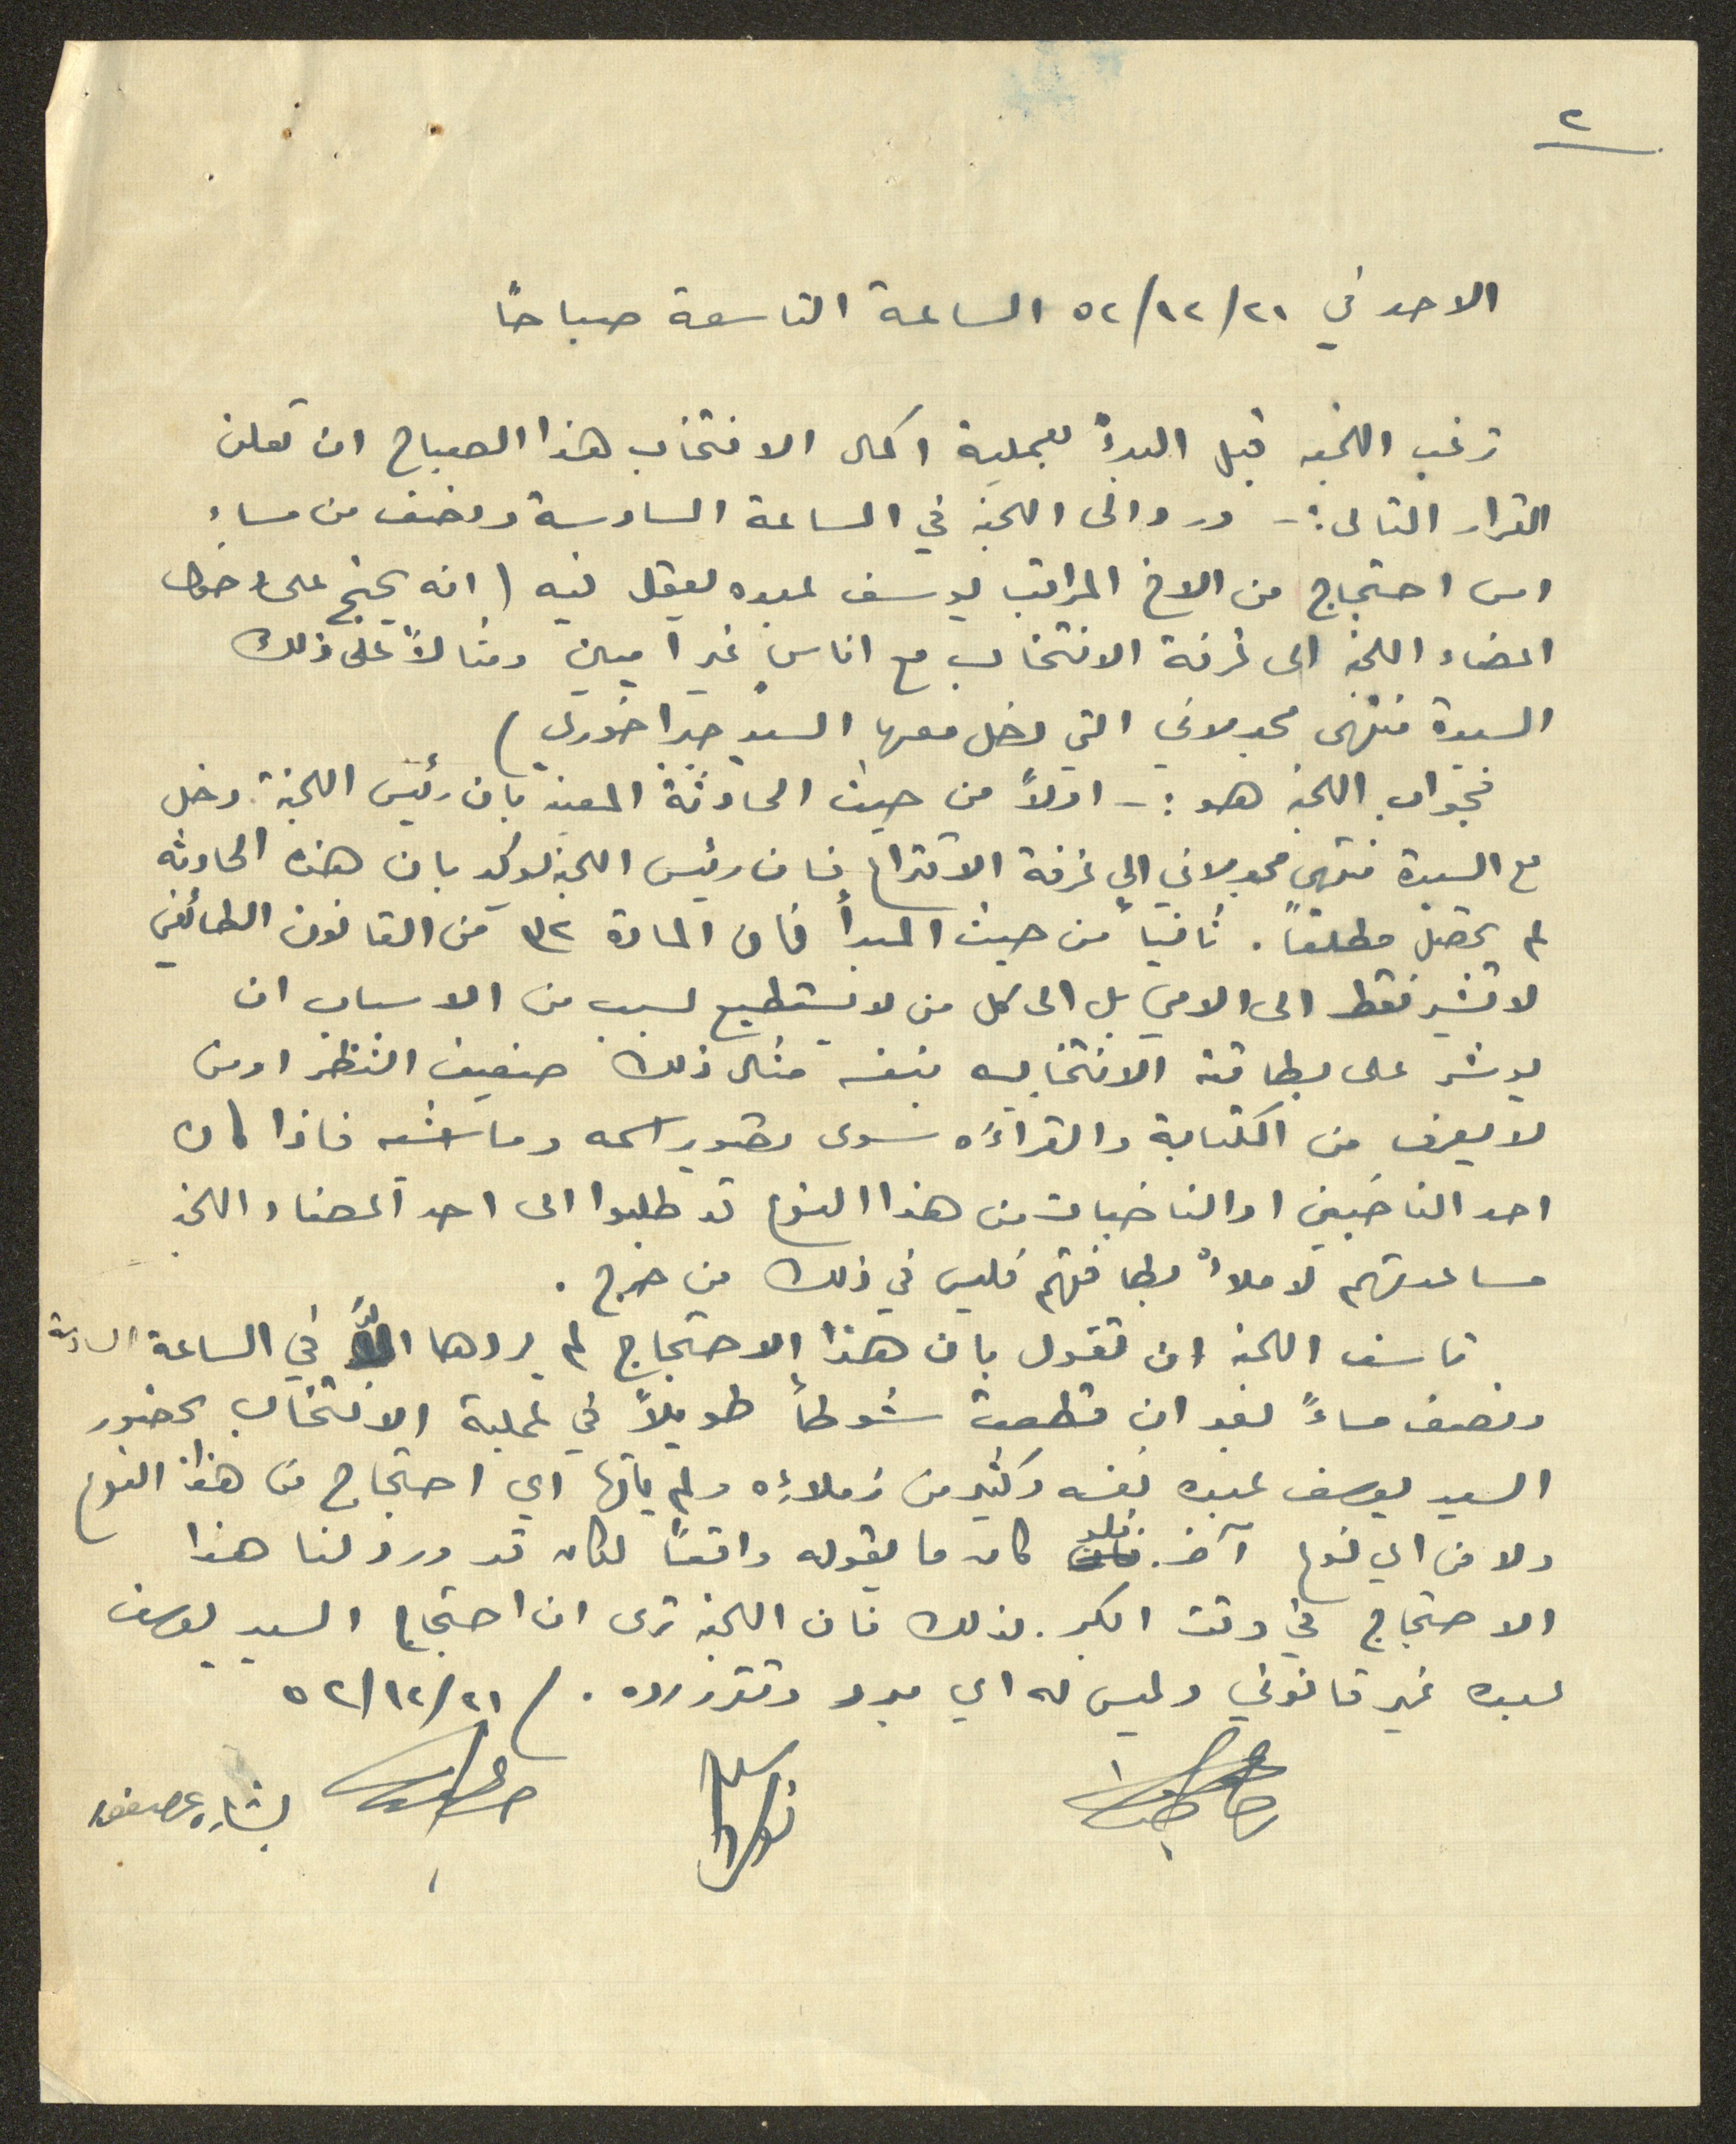 ٢
الاحد في ٥٢/١٢/٢١ الساعة التاسعة صباحاً
ترغب اللجنه قبل البدءْ بعملية اكمال الانتخاب هذا الصباح ان تعلن
القرار التالي :- ورد الى اللجنه في الساعة السادسة ونصف من مساء
امس احتجاج من الاخ المراقب يوسف عبده يقول فيه ( انه يحتج على دخول
اعضاء اللجنه الى غرفة الانتخاب مع اناس غير اميين ومثالاً على ذلك
السيدة منتهى مجدلاني التي دخل معها السيد جبرا خوري )
فجواب اللجنه هو :- اولاً من حيث الحادثة المعينه بان رئيس اللجنة دخل
مع السيدة منتهى مجدلاني الى غرفة الاقتراع فان رئيس اللجنه يؤكد بان هذه الحادثه
لم تحصل مطلقاً . ثانياً من حيث المبدأ فان المادة ٣٢ من القانون الطائفي
لا تشير فقط الى الامي بل الى كل من لا يستطيع لسبب من الاسباب ان
يوشر على بطاقته الانتخابيه بنفسه مثال ذلك ضعيف النظر او من
لا يعرف من الكتابة والقراءه سوى تصوير اسمه وما اشبه فاذا كان
احد الناخبين او الناخبات من هذا النوع قد طلبوا الى احد اعضاء اللجنه
مساعدتهم لاملاءْ بطاقتهم فليس في ذلك من حرج .
تاسف اللجنه ان تقول بان هذا الاحتجاج لم يردها الا في الساعة السادسة
ونصف مساءً بعد ان قطعت شوطاً طويلاً في عملية الانتخاب بحضور
السيد يوسف عبده نفسه وكثير من زملاءِه ولم ياتها اي احتجاج من هذا النوع
ولا من اي نوع آخر . فلو كان ما يقوله واقعاً لكان قد ورد لنا هذا
الاحتجاج في وقت ابكر . لذلك فان اللجنه ترى ان احتجاج السيد يوسف
عبده غير قانوني وليس له اي مبرر وتقرر رده . / ٥٢/١٢/٢١
بشاره عصفور